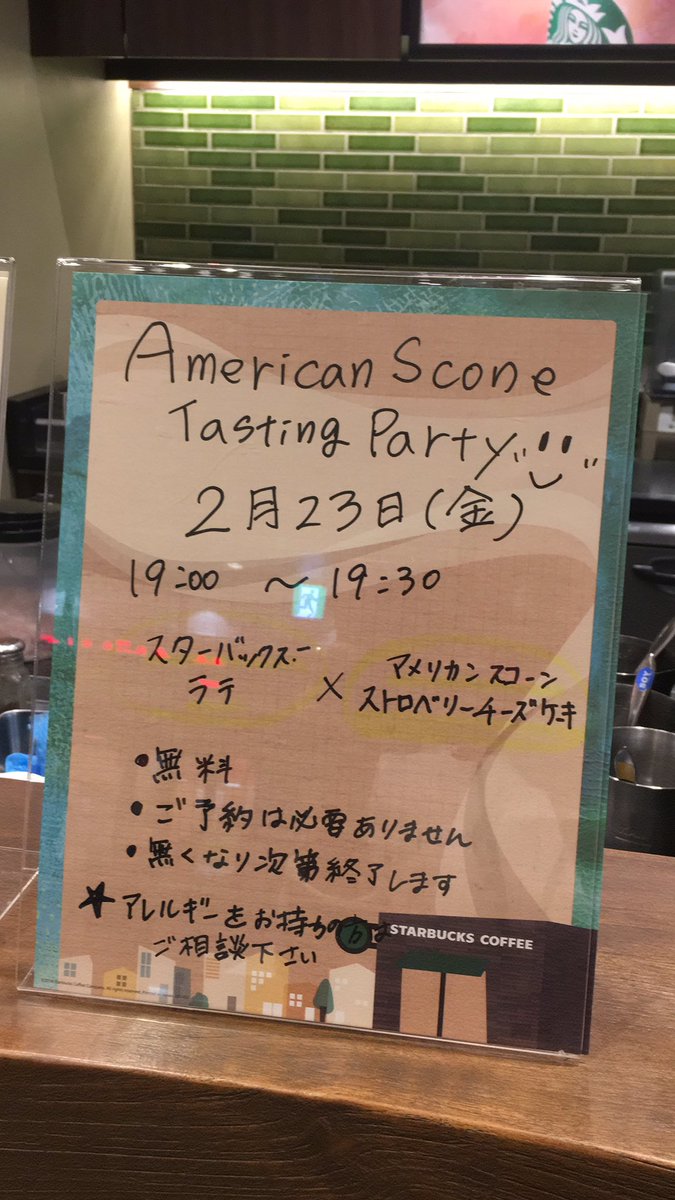 American Scone
Tasting Party
2月23日(金)
19:00 ～ 19:30
スターバックス
ラテ
×
アメリカンスコーン
ストロベリーチーズケーキ
•無料
•ご予約は必要ありません
•無くなり次第終了します
★アレルギーをお持ちの方は
ご相談下さい
STARBUCKS COFFEE